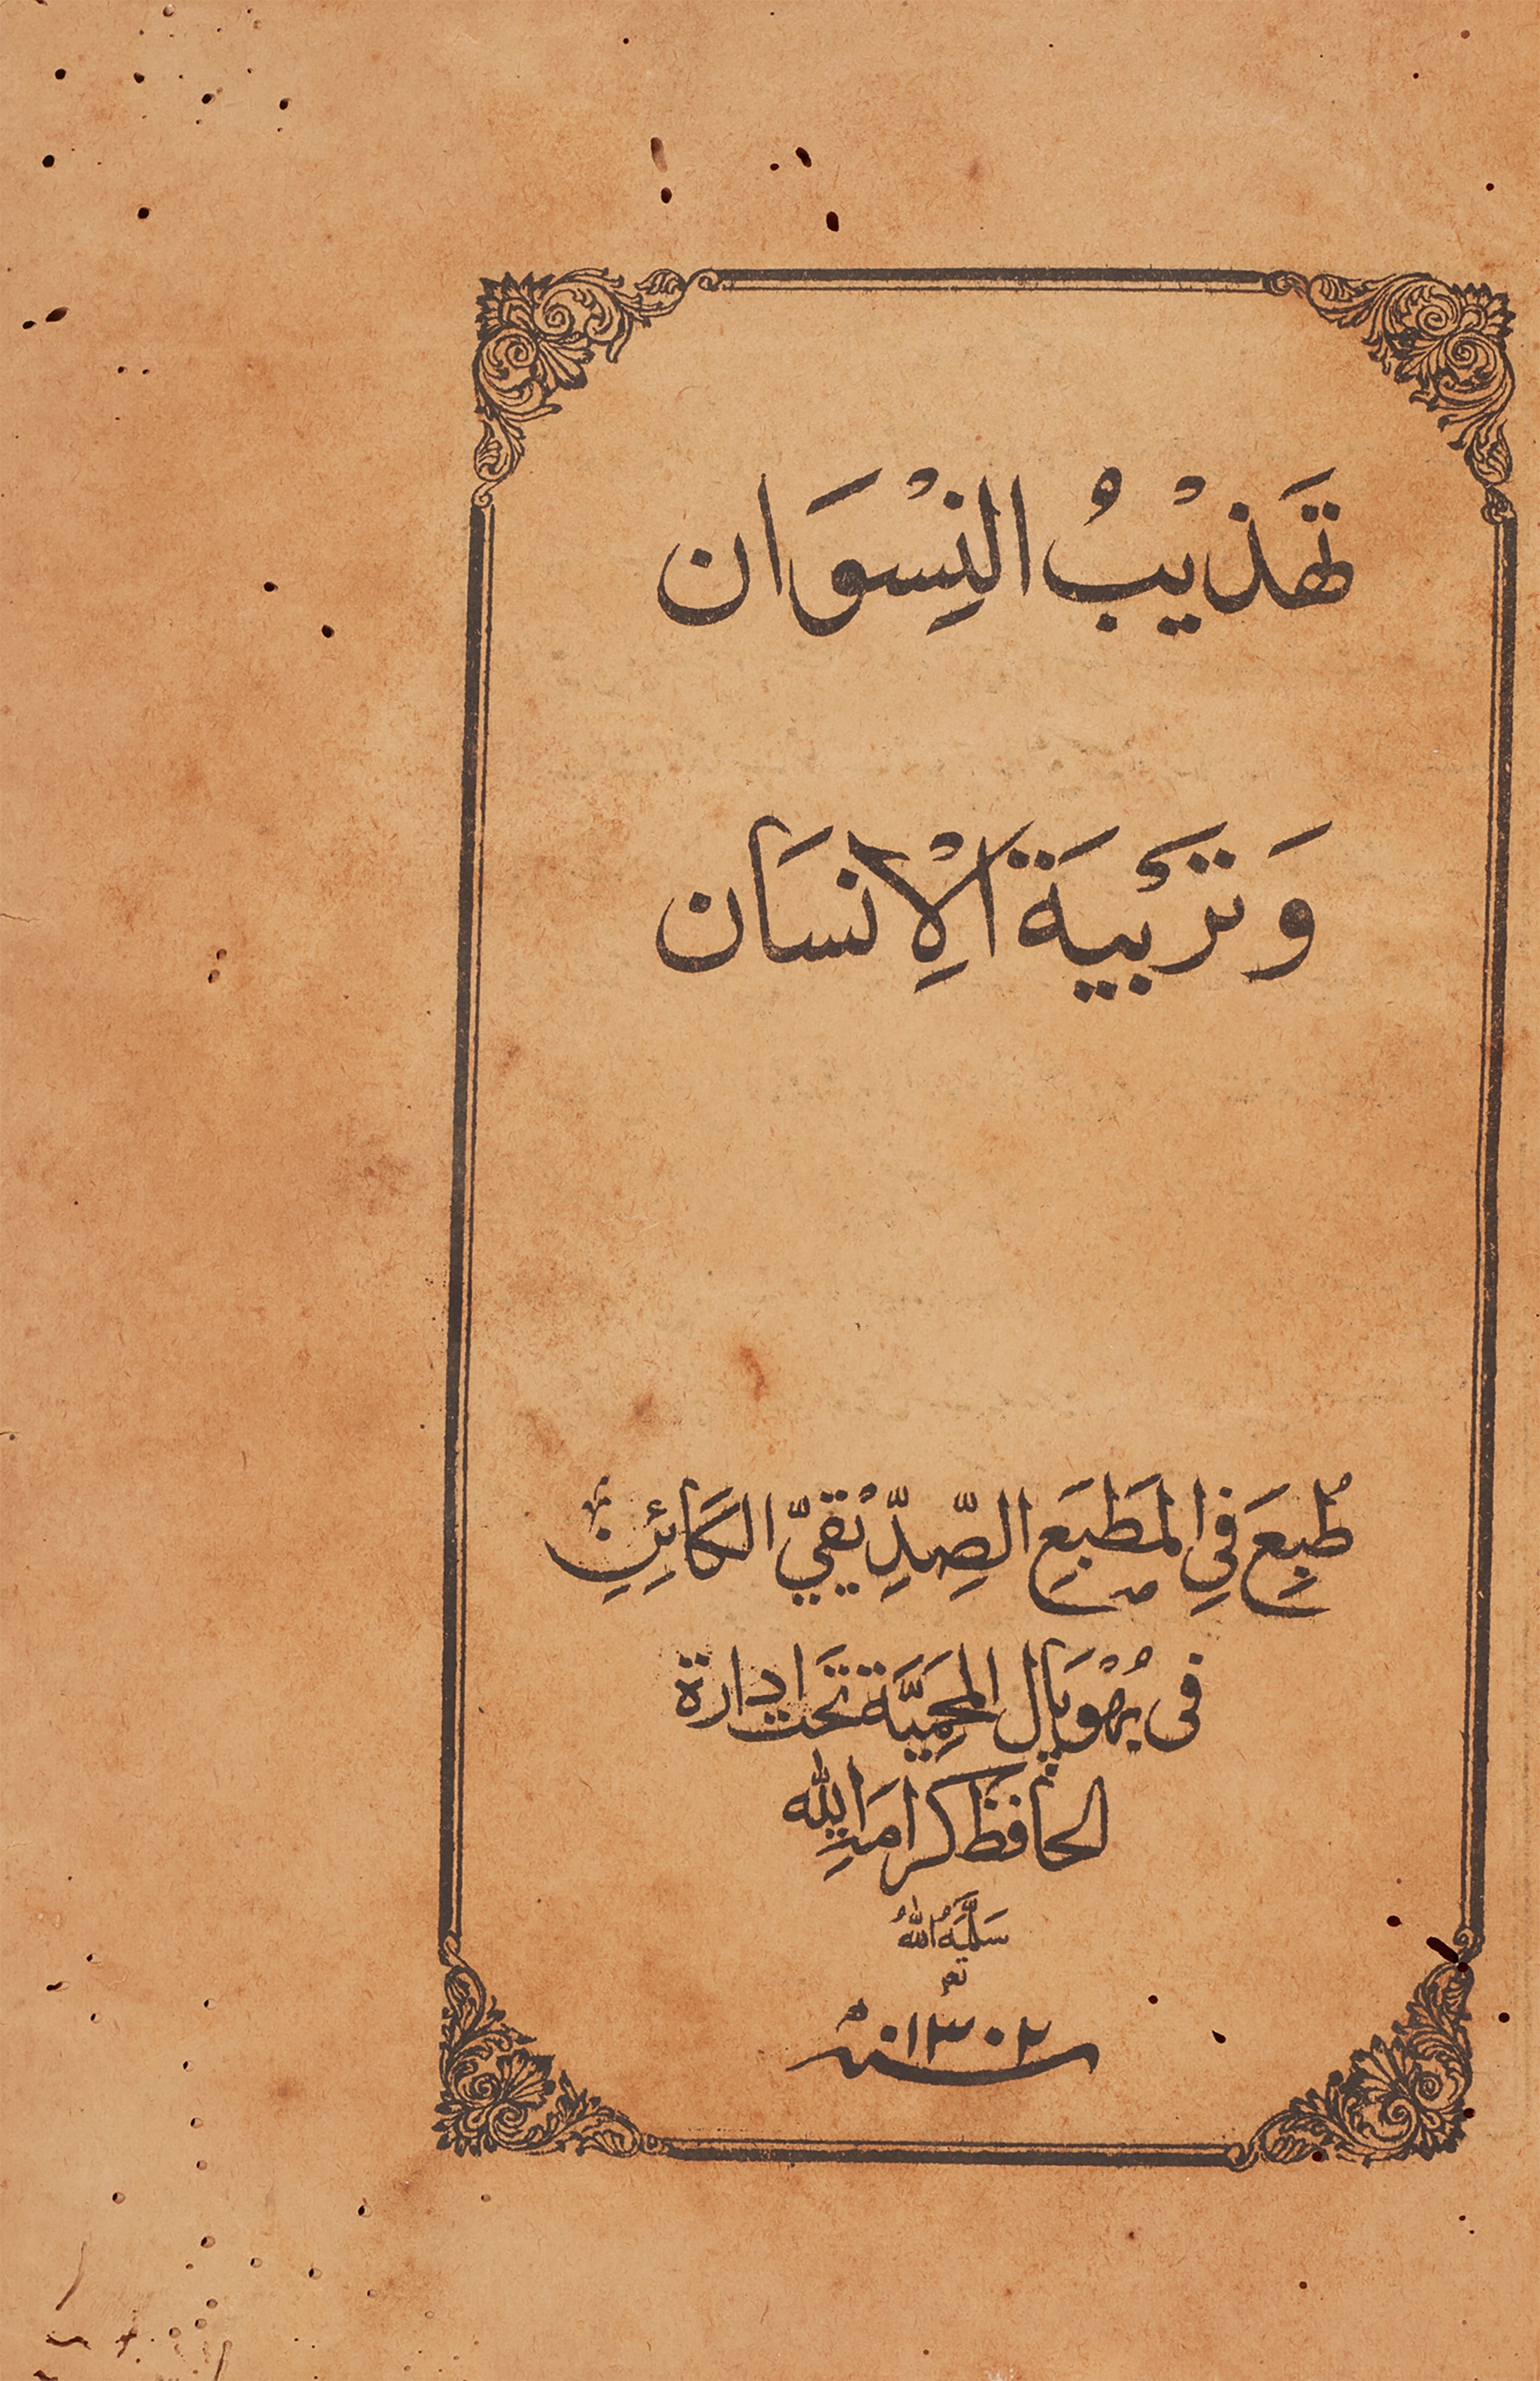 تَهَذِيْبُ النِسْوَان
وَتَرْبِيَة الْاِنْسَان
طُبِعَ فِي المَطْبَعِ الصِّدِّيْقِيِّ الكَائِنِ
فى بُهْوپَال المَحمِيَّة تَحَت اِدارة
الحافظ كرامَتِ الله
سَلَّمَهُ اللهُ
تعم
سنه ۱۳۰۲